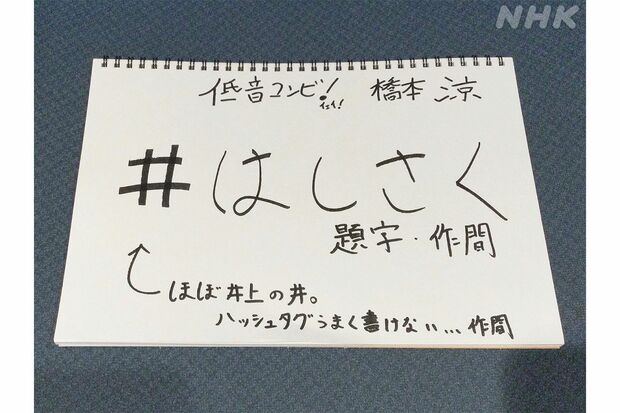 NHK
低音コンビ! イェイ! 橋本 涼
#はしさく
題字・作間
ほぼ井上の井。
ハッシュタグうまく書けない…作間